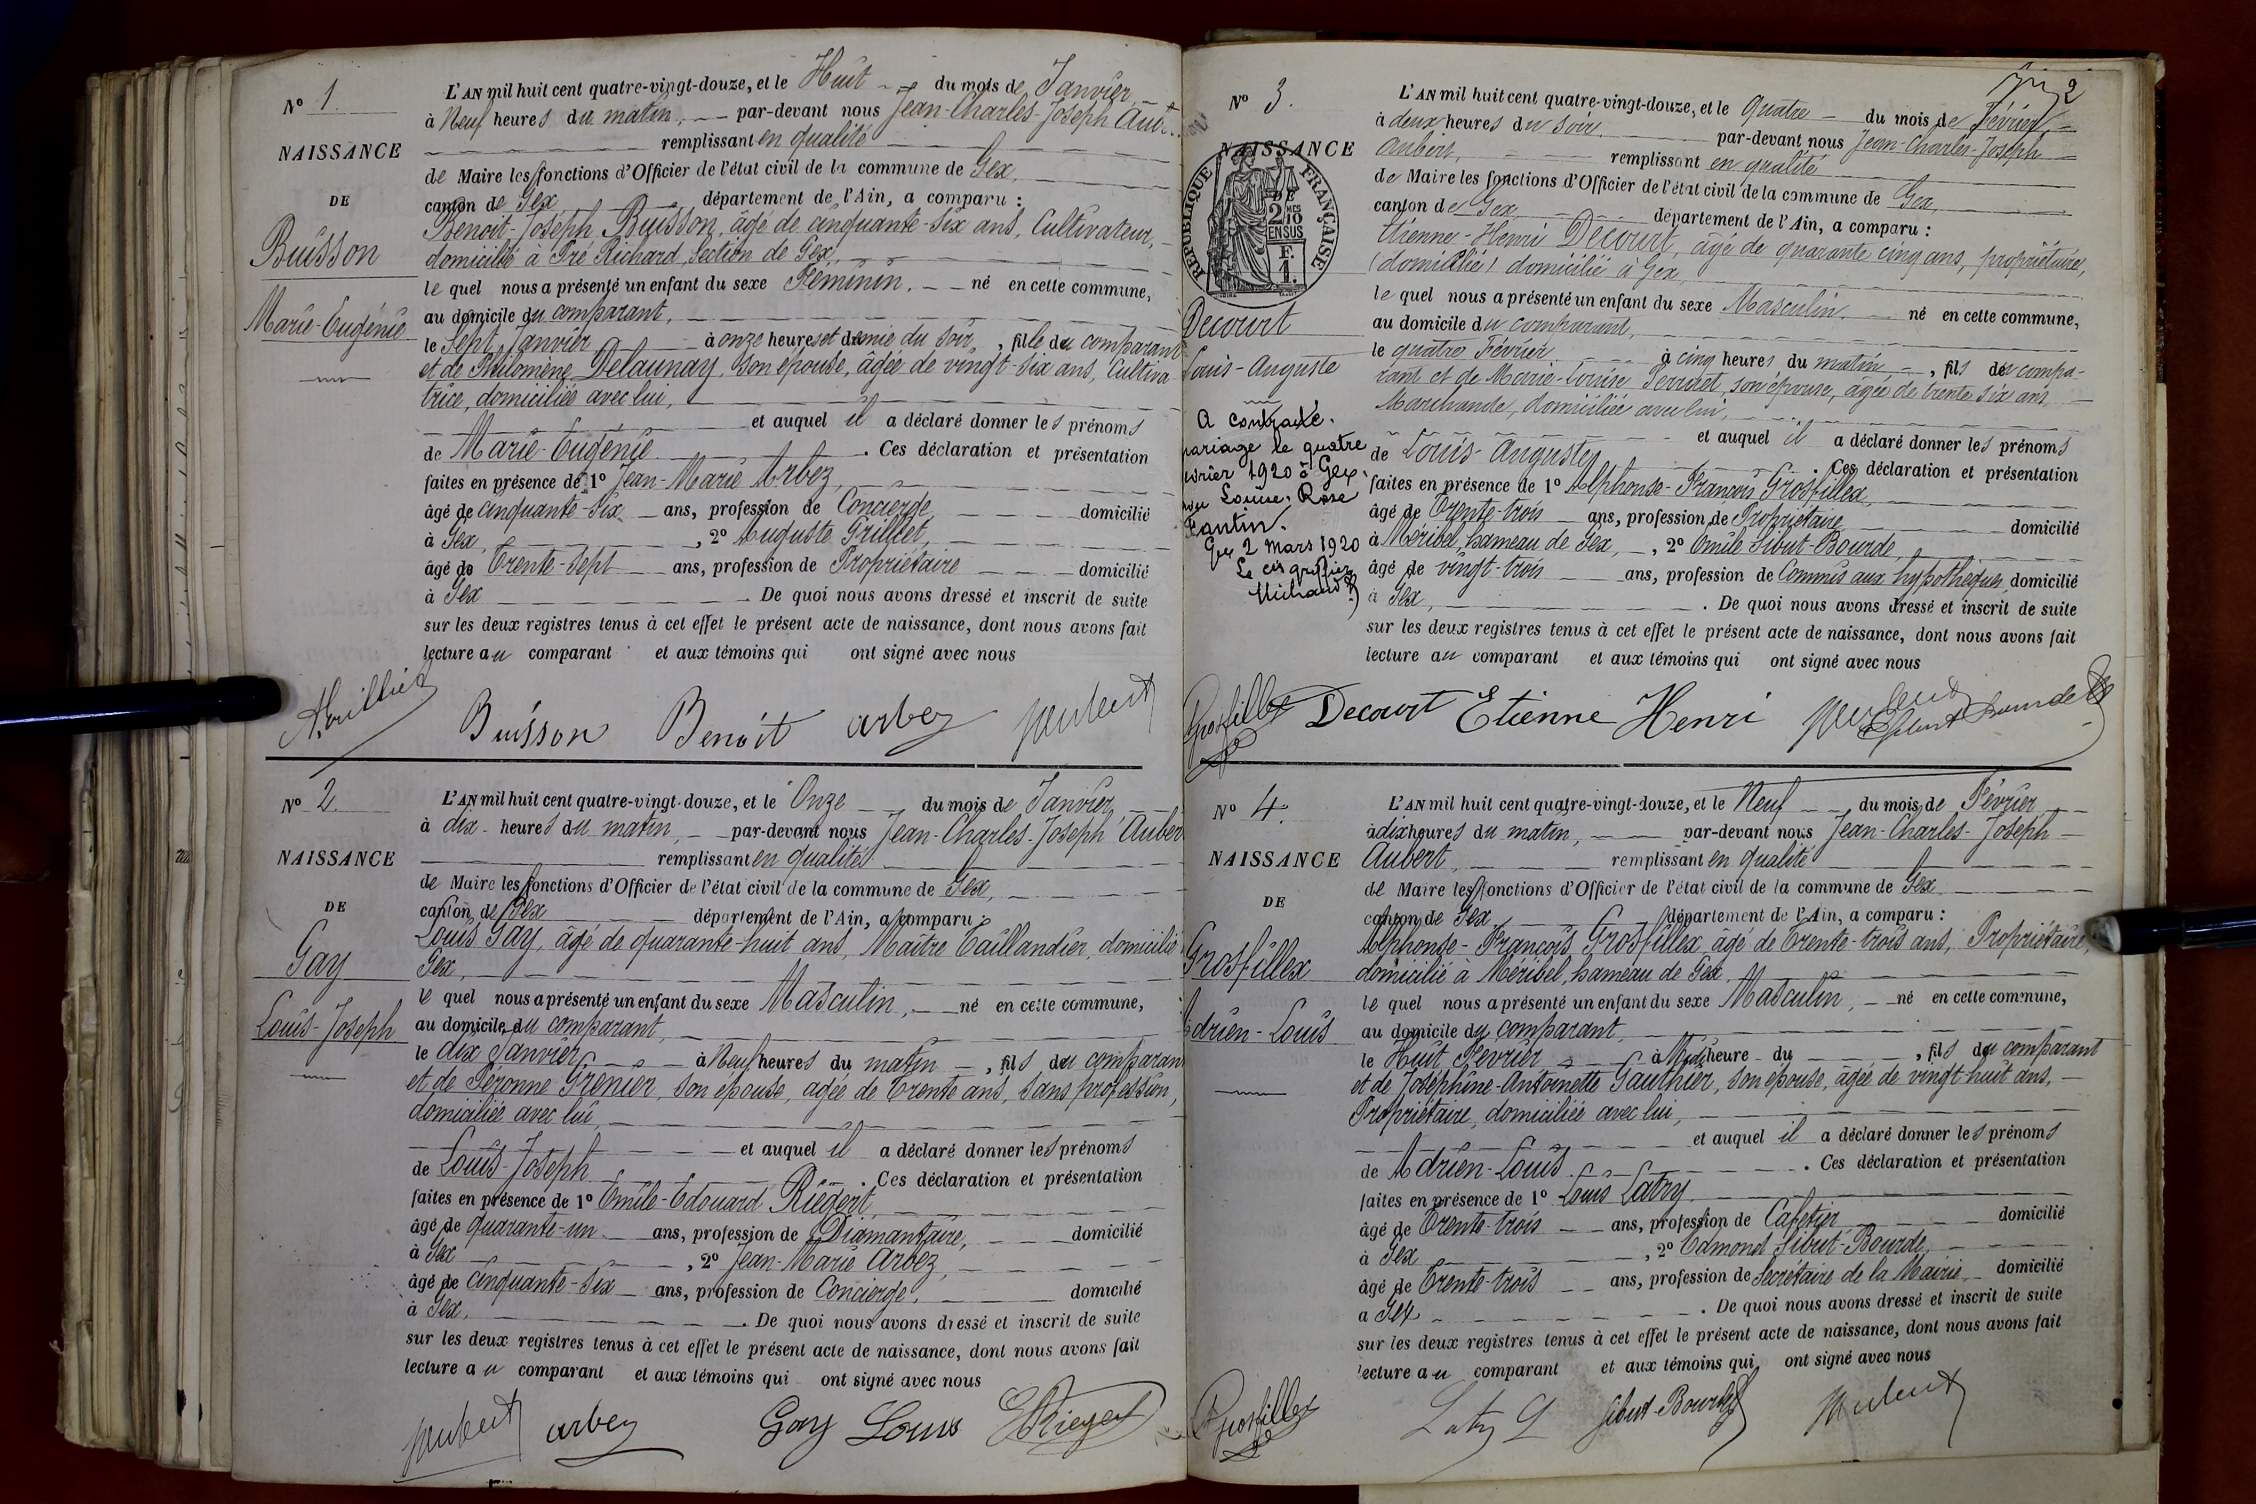 N° 1
NAISSANCE
DE
Buisson
Marie-Eugénie
L'AN mil huit cent quatre-vingt-douze, et le Huit du mois de Janvier
à Neuf heures du matin, par-devant nous Jean-Charles-Joseph Aub
remplissant en qualité
de Maire les fonctions d'Officier de l'état civil de la commune de Gex,
canton de Gex département de l'Ain, a comparu :
Benoit-Joseph Buisson, âgé de cinquante-six ans, Cultivateur,
domicilié à Pré Richard, Section de Gex,
le quel nous a présenté un enfant du sexe Féminin, né en cette commune,
au domicile du comparant,
le Sept Janvier à onze heures et demie du soir, fille du comparant
et de Philomène Delaunay, son épouse, âgée de vingt-six ans, Cultiva
trice, domiciliée avec lui,
et auquel il a déclaré donner les prénoms
de Marie-Eugénie. Ces déclaration et présentation
faites en présence de 1° Jean-Marie Arbez,
âgé de cinquante-six ans, profession de Concierge domicilié
à Gex, 2° Auguste Grillet,
âgé de Trente-sept ans, profession de Propriétaire domicilié
à Gex. De quoi nous avons dressé et inscrit de suite
sur les deux registres tenus à cet effet le présent acte de naissance, dont nous avons fait
lecture au comparant et aux témoins qui ont signé avec nous
Buisson Benoit arbez Aubert
N° 2
NAISSANCE
DE
Gay
Louis-Joseph
L'AN mil huit cent quatre-vingt-douze, et le Onze du mois de Janvier
à dix heures du matin, par-devant nous Jean-Charles-Joseph Auber
remplissant en qualité
de Maire les fonctions d'Officier de l'état civil de la commune de Gex,
canton de Gex département de l'Ain, a comparu :
Louis Gay, âgé de quarante-huit ans, Maître Taillandier, domicilié
Gex,
le quel nous a présenté un enfant du sexe Masculin, né en cette commune,
au domicile du comparant,
le dix Janvier à Neuf heures du matin, fils du comparan
et de Péronne Grenier, son épouse, âgée de Trente ans, sans profession,
domiciliée avec lui,
et auquel il a déclaré donner les prénoms
de Louis-Joseph. Ces déclaration et présentation
faites en présence de 1° Emile-Edouard Riegert,
âgé de quarante-un ans, profession de Diamantaire, domicilié
à Gex, 2° Jean-Marie Arbez,
âgé de Cinquante-six ans, profession de Concierge, domicilié
à Gex,. De quoi nous avons dressé et inscrit de suite
sur les deux registres tenus à cet effet le présent acte de naissance, dont nous avons fait
lecture au comparant et aux témoins qui ont signé avec nous
Aubert arbez Gay Louis E Riegert
2
N° 3.
NAISSANCE
RÉPUBLIQUE FRANÇAISE
DE
2/10 MES
EN SUS
F.
1
Decourt
Louis-Auguste
A contracté
mariage le quatre
évrier 1920 à Gex
Louise, Rose
Fantin.
Gex 2 Mars 1920
Le cis greffier
Michaud
L'AN mil huit cent quatre-vingt-douze, et le Quatre du mois de Février,
à deux heures du soir, par-devant nous Jean-Charles-Joseph
Aubert, remplissant en qualité
de Maire les fonctions d'Officier de l'état civil de la commune de Gex,
canton de Gex, département de l'Ain, a comparu :
Etienne-Henri Decourt, âgé de quarante cinq ans, propriétaire,
(domicilié) domicilié à Gex,
le quel nous a présenté un enfant du sexe Masculin, né en cette commune,
au domicile du comparant,
le quatre Février à cinq heures du matin, fils du compa-
rant et de Marie-Louise Perrotet, son épouse, âgée de trente six ans
Marchande, domiciliée avec lui,
et auquel il a déclaré donner les prénoms
de Louis-Auguste. Ces déclaration et présentation
faites en présence de 1° Alphonse-François Grosfillex,
âgé de Trente-trois ans, profession de Propriétaire domicilié
à Méribel, hameau de Gex, 2° Emile Sibut-Bourde
âgé de vingt-trois ans, profession de Commis aux hypothèques, domicilié
à Gex,. De quoi nous avons dressé et inscrit de suite
sur les deux registres tenus à cet effet le présent acte de naissance, dont nous avons fait
lecture au comparant et aux témoins qui ont signé avec nous
Grosfillex Decourt Etienne Henri Aubert ESibut Bourde
N° 4.
NAISSANCE
DE
Grosfillex
Adrien-Louis
L'AN mil huit cent quatre-vingt-douze, et le Neuf du mois de Février
à dix heures du matin, par-devant nous Jean-Charles-Joseph
Aubert, remplissant en qualité
de Maire les fonctions d'Officier de l'état civil de la commune de Gex
canton de Gex département de l'Ain, a comparu :
Alphonse-François Grosfillex, âgé de Trente-trois ans, Propriétaire,
domicilié à Méribel, hameau de Gex,
le quel nous a présenté un enfant du sexe Masculin, né en cette commune,
au domicile du comparant,
le Huit Février à Midi heure du , fils du comparant
et de Joséphine-Antoinette Gauthier, son épouse, âgée de vingt-huit ans,
Propriétaire, domiciliée avec lui,
et auquel il a déclaré donner les prénoms
de Adrien-Louis. Ces déclaration et présentation
faites en présence de 1° Louis Latry
âgé de Trente-trois ans, profession de Cafetier domicilié
à Gex, 2° Edmond Sibut-Bourde,
âgé de Trente-trois ans, profession de Secrétaire de la Mairie domicilié
à Gex. De quoi nous avons dressé et inscrit de suite
sur les deux registres tenus à cet effet le présent acte de naissance, dont nous avons fait
lecture au comparant et aux témoins qui ont signé avec nous
Grosfillex Latry L Sibut-Bourde Aubert